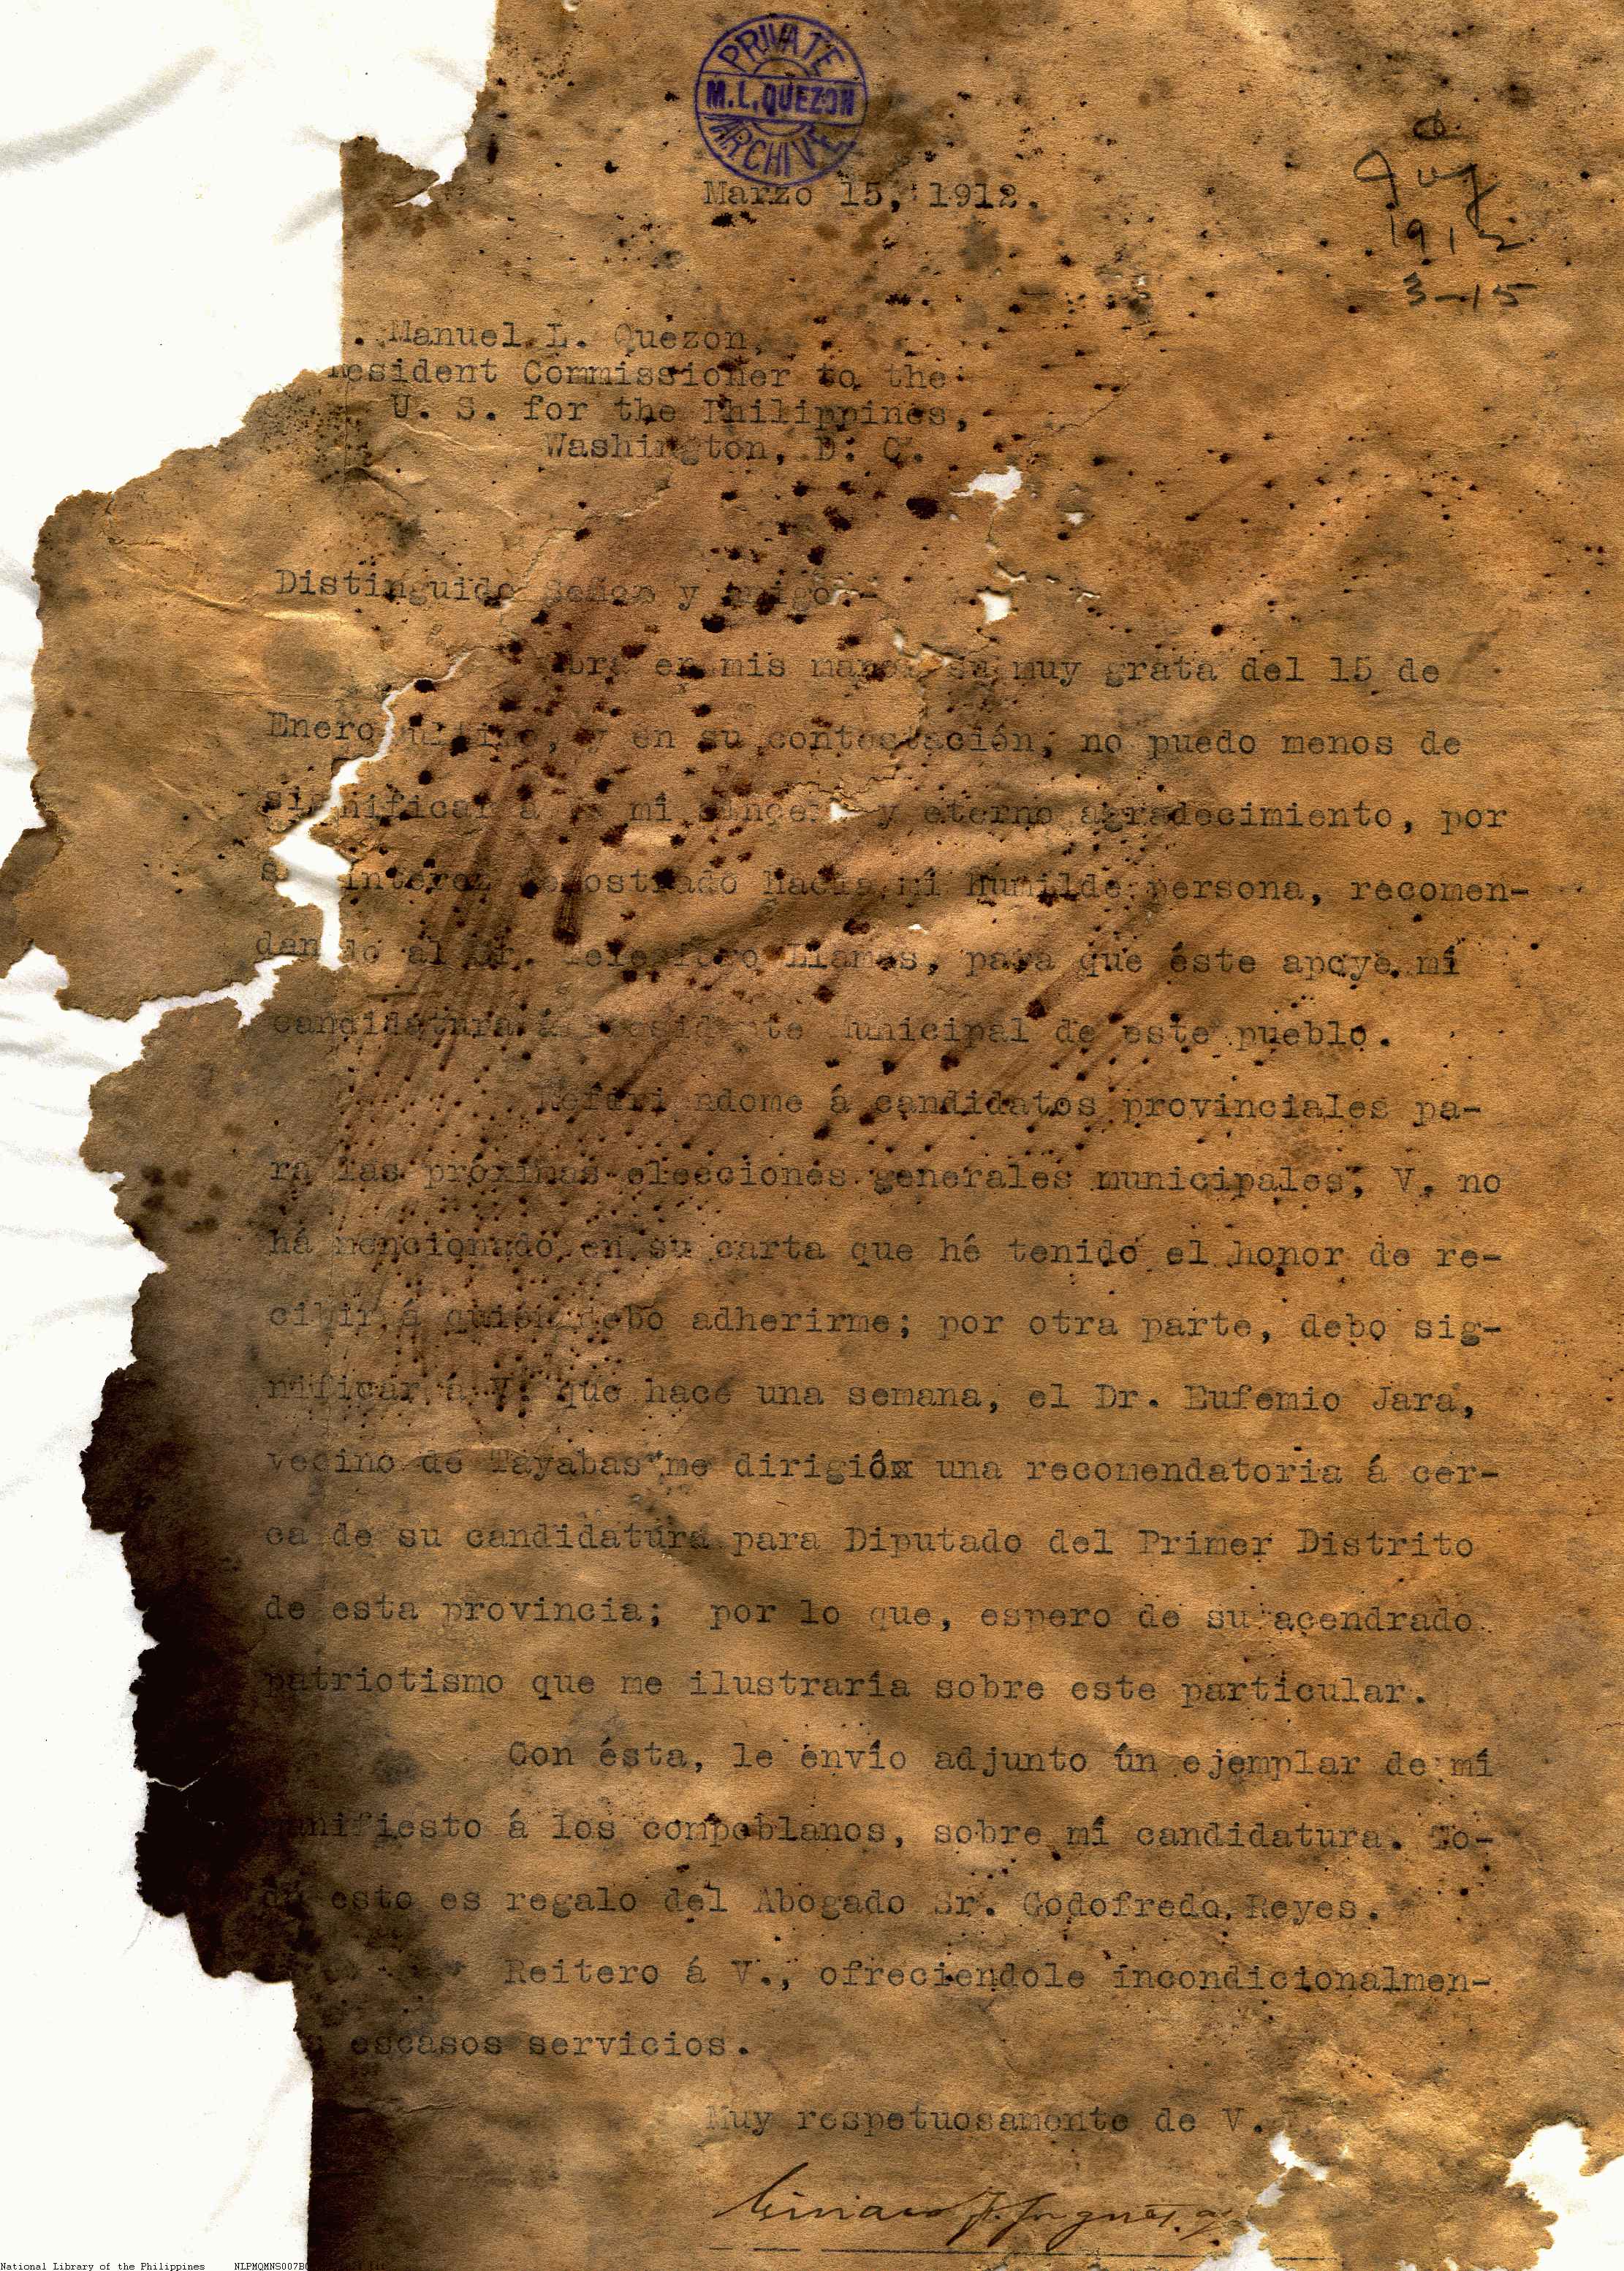 PRIVATE
M.L.QUEZON
ARCHIVE
Marzo 15, 1912.
1912
3-15
. Manuel L. Quezon,
Resident Commissioner to the
U. S. for the Philippines,
Washington, D. C.
Distinguido Señor y amigo:-
Obra en mis manos su muy grata del 15 de
Enero último, y en su contestación, no puedo menos de
significar á V. mi sincero y eterno agradecimiento, por
su interez demostrado hacia mí humilde persona, recomen-
dando al Sr. Llamas, para que éste apoye mí
candidatura á Presidente Municipal de este pueblo.
Refiriendome á candidatos provinciales pa-
ra las próximas elecciones generales municipales, V. no
há mencionado en su carta que hé tenido el honor de re-
cibir á quien debo adherirme; por otra parte, debo sig-
nificar á V. que hace una semana, el Dr. Eufemio Jara,
vecino de Tayabas me dirigió una recomendatoria á cer-
ca de su candidatura para Diputado del Primer Distrito
de esta provincia; por lo que, espero de su acendrado
patriotismo que me ilustraría sobre este particular.
Con ésta, le envío adjunto ún ejemplar de mí
manifiesto á los compoblanos, sobre mí candidatura. To-
do esto es regalo del Abogado Sr. Godofredo Reyes.
Reitero á V., ofreciendole incondicionalmen-
escasos servicios.
Muy respetuosamente de V.
National Library of the Philippines